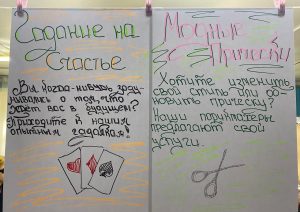 Гадание на
Счастье
Вы когда-нибудь заду-
мывались о том, что
ждет вас в будущем?
Приходите к нашим
опытным гадалкам!
Модные
Прически
Хотите изменить
свой стиль или об-
новить прическу?
Наши парикмахеры
предлагают свои
услуги.